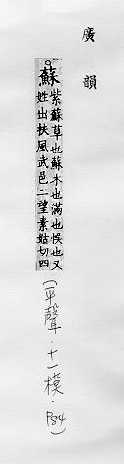 廣韻
蘇紫蘇草也蘇木也滿也悮也又
姓出扶風武邑二望素姑切四
(平聲·十一模·P84)